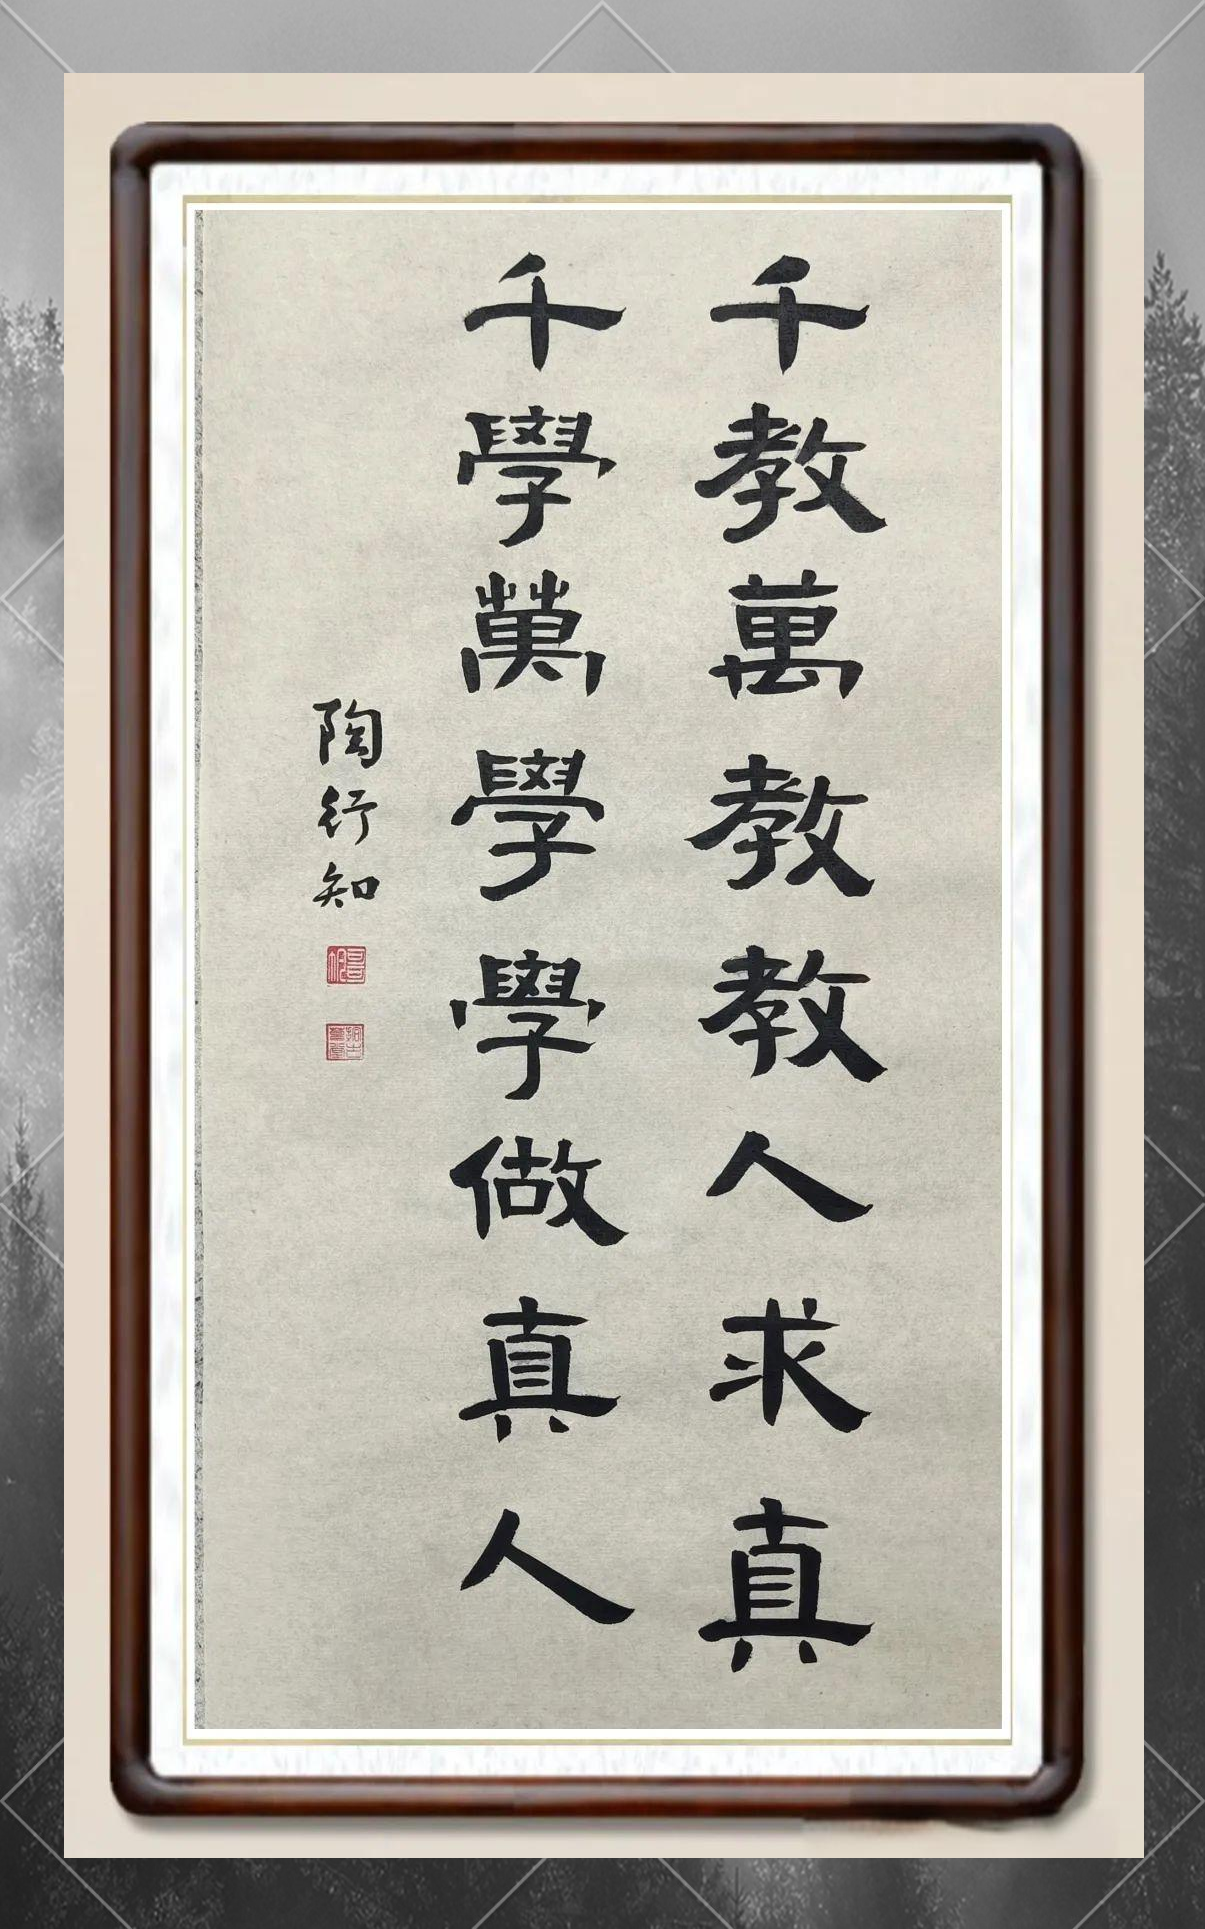 千教萬教教人求真
千學萬學學做真人
陶行知